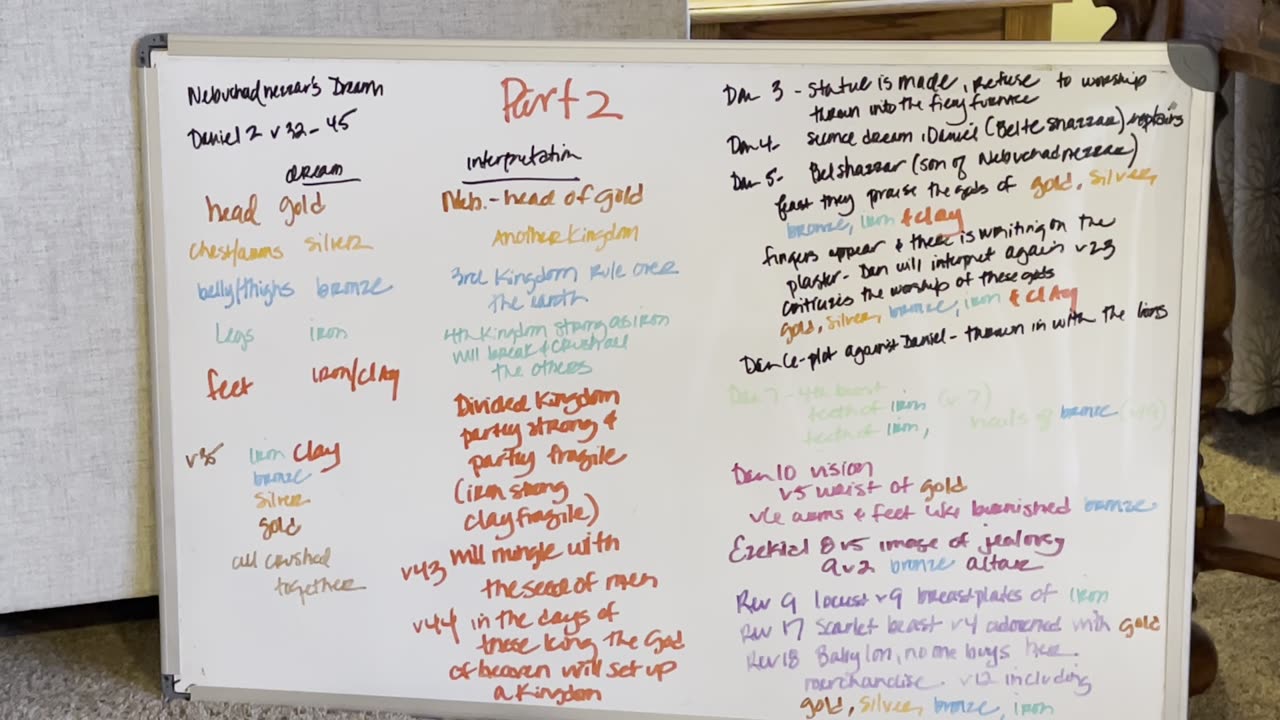 Nebuchadnezzar's Dream
Daniel 2 v32-45
Part 2
dream
interpretation
head gold
Neb. - head of gold
chest/arms silver
Another Kingdom
belly/thighs bronze
3rd Kingdom Rule over
the earth
Legs iron
4th Kingdom strong as iron
will break & crush all
the others
feet iron/clay
Divided Kingdom
partly strong &
partly fragile
(iron strong
clay fragile)
v35 iron clay
bronze
silver
gold
all crushed
together
v43 will mingle with
the seed of men
v44 in the days of
these king the God
of heaven will set up
a Kingdom
Dan 3 - statue is made, refuse to worship
thrown into the fiery furnace
Dan 4- dream, Daniel (Belteshazzar) explains
Dan 5- Belshazzar (son of Nebuchadnezzar)
feast they praise the gods of gold, silver,
bronze, iron & clay
fingers appear & there is writing on the
plaster - Dan will interpret again v23
the worship of these gods
gold, silver, bronze, iron & clay
Dan 6 - plot against Daniel - thrown in with the lions
Dan 7 - 4th beast
teeth of iron (v7)
teeth of iron, nails of bronze (v19)
Dan 10 vision
v5 waist of gold
v6 arms & feet like burnished bronze
Ezekiel 8v5 image of jealousy
9v2 bronze altar
Rev 9 locust v9 breastplates of iron
Rev 17 Scarlet beast v4 adorned with gold
Rev 18 Babylon, no one buys her
merchandise. v12 including
gold, silver, bronze, iron